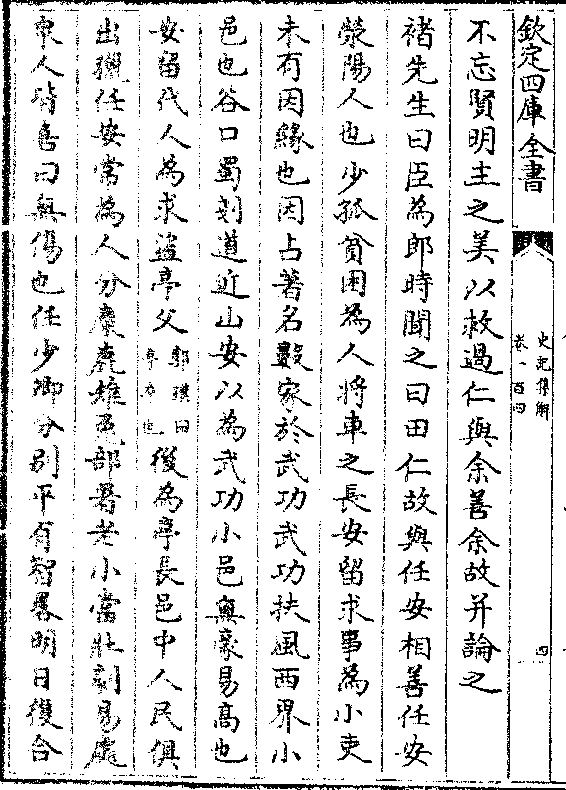 欽定四庫全書
史記集解
卷一百四
四
不忘賢明主之美以救過仁與余善余故并論之
褚先生曰臣為郎時聞之曰田仁故與任安相善任安
滎陽人也少孤貧困為人將車之長安留求事為小吏
未有因緣也因占著名數家於武功武功扶風西界小
邑也谷口蜀剗道近山安以為武功小邑無豪易高也
安留代人為求盜亭父郭璞曰亭卒也後為亭長邑中人民俱
出獵任安常為人分麋鹿雉兎部署老小當壯劇易處
衆人皆喜曰無傷也任少卿分别平有智畧明日復合